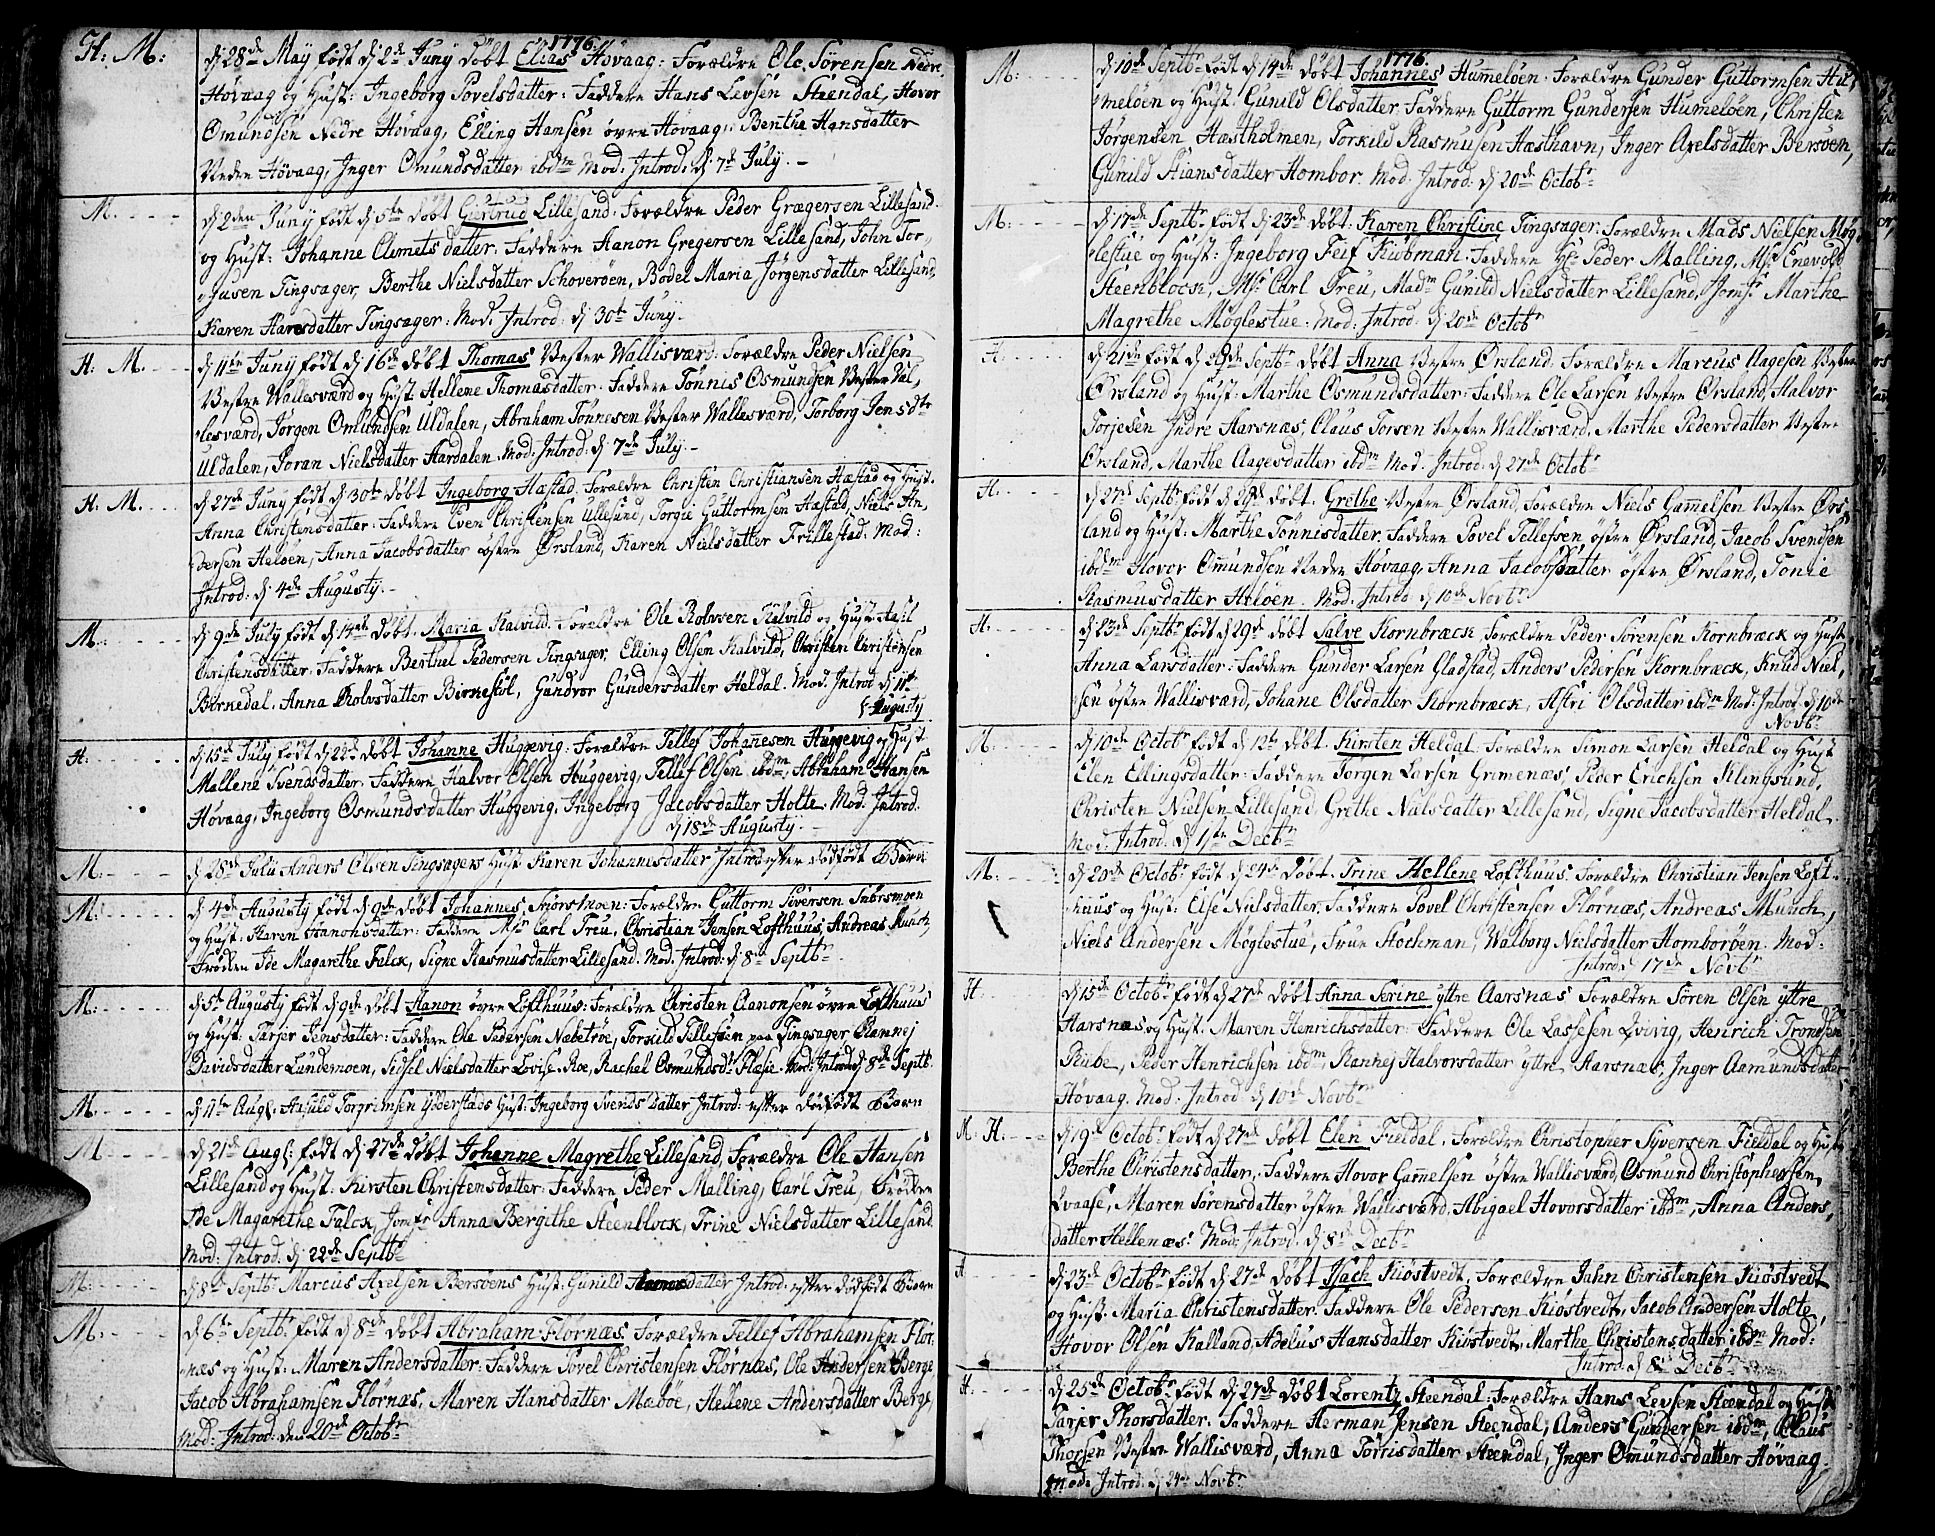 1776.
H: M: d 28de May født d 2de Juny døbt Elias Høvaag: Forældre Ole Sørensen Nedre
Høvaag og Hust: Ingeborg Povelsdatter: Faddere Hans Levsen Steendal, Hovor
Omundsen Nedre Høvaag, Elling Hansen øvre Høvaag, Benthe Hansdatter
Neden Høvaag, Inger Omundsdatter ibdm Mod: Introd: d: 7de July. –
M. d 2den Juny født d 5te døbt Gurtrud Lillesand. Forældre Peder Grægersen Lillesand
og Hust: Johanne Clemetsdatter: Faddere Aanon Gregersen Lillesand, John Tor-
Jusen Tingsager, Berthe Nielsdatter Schoverøen, Bodel Maria Jörgensdatter Lillesand,
Karen Haresdatter Tingsager: Mod: Introd: d 30te Juny.
H: M. d 11te Juny født d 16de døbt Thomas Vester Wallisværd: Forældre Peder Nielsen
Vestre Wallesværd og Hust: Hellene Thomasdatter: Faddere Tönnes Osmundsen Vester Wal,
lesværd, Jørgen Omundsen Uldalen, Abraham Tönnesen Vester Wallesværd, Torborg Jensdtr
Uldalen, Joran Nielsdatter Hardalen. Mod: Introd: d 7de July. –
H: M. d 27de Juny født d 30te døbt Ingeborg Hæstad. Forældre Christen Christiansen Hæstad og Hust.
Anna Christensdatter: Faddere Even Christensen Ullesund, Torgie Guttormsen Hæstad, Niels An,
dersen Heløen, Anna Jacobsdatter østre Ørsland, Karen Nielsdatter Frillestad. Mod:
Introd: d 4de Augusty. –
M: d 9de July født d 14de døbt. Maria Kalvild. Forældre Ole Rolvsen Kalvild og Hust: Assil
Christensdatter: Faddere Berthel Pedersen Tingsager, Elling Olsen Kalvild, Christen Christensen
Birkedal, Anna Rolvsdatter Birkestöl, Gundvor Gundersdatter Heldal. Mod: Introd d 11te
Augusty
H: d 15de July født d 22de døbt Johanne Huggevig: Forældre Tellef Johanesen Huggevig og Hust
Mallene Svendsdatter. Faddere Halvor Olsen Huggevig, Tellef Olsen ibdm, Abraham Hansen
Høvaag, Ingeborg Osmundsdatter Huggevig, Ingeborg Jacobsdatter Holte. Mod: Introd.
d 18de Augusty. –
M: d 28de Julii Anders Olsen Tingsagers Hust Karen Johannesdatter Introd efter dødfødt Barn
M: d 4de Augusty født d 9de døbt Johannes Snörsmoen: Forældre Guttorm Siversen Snörsmoen
og Hust: Karen Aanonsdatter: Faddere Mr Carl Treu, Christian Jensen Lofthuus, Andreas Munch,
Frøcken Ide Magarethe Falck, Signe Rasmusdatter Lillesand. Mod: Introd: d 8de Septbr.
M: d 5te Augusty født d 9de døbt Aanon øvre Lofthuus: Forældre Christen Aanonsen øvre Lofthuus
og Hust: Tarjer Jensdatter: Faddere Ole Pedersen Næbetröe, Torkild Tellefsen paa Tingsager Ramnej
Davidsdatter Lundemoen, Sidsel Nielsdatter Lovise-Roe, Rachel Osmundsdr Flæsie. Mod: Introd d 8de Septb.
M: d 11te Augs. Asuld Torgrimsen Ydderstads Hust: Ingeborg Svendsdatter Introd: efter dødfødt Barn
M: d 21de Augs: født d 27de døbt Johanne Magrethe Lillesand, Forældre Ole Hansen
Lillesand og Hust: Kirsten Christensdatter: Faddere Peder Malling, Carl Treu, Frøcken
Ide Magarethe Falck, Jomfr Anna Bergithe Steenblock, Trine Nielsdatter Lillesand.
Mod: Introd: d 22de Septbr
M: d 8de Septbr. Marcus Axelsen Bersøens Hust: Gunild datter Introd: efter dødfødt Barn
M: d 6te Septbr født d 8de døbt Abraham Flörnæs. Forældre Tellef Abrahamsen Flör,
næs og Hust: Maren Andersdatter: Faddere Povel Christensen Flörnæs, Ole Andersen Berge
Jacob Abrahamsen Flörnæs, Maren Hansdatter Mæböe, Hellene Andersdatter Berge,
Mod: Introd: den 20de Octobr
1776.
M: d 10de Septbr født d 14de døbt Johannes Hummeløen: Forældre Gunder Guttormsen Hu,
meløen og Hust: Gunild Olsdatter: Faddere Guttorm Gundersen Humeløen, Christen
Jörgensen, Hæstholmen, Torkild Rasmusen Hæsthavn, Inger Axelsdatter Bersøen,
Gunild Stiansdatter Hombor. Mod: Introd: d 20de Octobr
M: d 17de Septbr født d 23de døbt: Karen Christine Tingsager: Forældre Mads Nielsen Møg,
lestue og Hust: Ingeborg Feif Kiöbman. Faddere Hr Peder Malling, Mr Enevold
Steenblock, Mr Carl Treu, Madm Gunild Nielsdatter Lillesand, Jomfr Marthe
Magrethe Møglestue. Mod: Introd: d 20de Octobr
H: d 21de født d 29de Septbr døbt Anna Vestre Ørsland. Forældre Marcus Aagesen Vestre
Ørsland og Hust: Marthe Osmundsdatter: Faddere Ole Larsen Vestre Ørsland, Halvor
Torjesen Indre Aarsnæs, Claus Torsen Vestre Wallisværd, Marthe Pedersdatter Vestre
Ørsland, Marthe Aagesdatter ibdm Mod: Introd: d 27de Octobr
H: d 27de Septbr født d 29de døbt. Grethe Vestre Ørsland, Forældre Niels Gamelsen Vestre Ørs,
land og Hust: Marthe Tönnisdatter. Faddere Povel Tellefsen østre Ørsland, Jacob Svendsen
ibdm Hovor Omundsen Neder Høvaag, Anna Jacobsdatter østre Ørsland, Tonie
Rasmusdatter Heløen. Mod: Introd d 10de Novbr
H: d 23de Septbr født d 29de døbt Salve Kornbræck, Forældre Peder Sörensen Kornbræck og Hust
Anna Larsdatter: Faddere Gunder Larsen Gladstad, Anders Pedersen Kornbræck, Knud Niel,
sen østre Wallisværd, Johane Olsdatter Kornbræck, Astri Olsdatter ibdm Mod: Introd: d 10de
Novbr
M. d 10de Octobr født d 13de døbt. Kirsten Heldal: Forældre Simon Larsen Heldal og Hust
Elen Ellingsdatter: Faddere Jorgen Larsen Grimenæs, Peder Erichsen Klingsund,
Christen Nielsen Lillesand, Grethe Nielsdatter Lillesand, Signe Jacobsdatter Heldal.
Mod: Introd: d 1ste Decbr
M: d 20de Octobr født d 24de døbt. Trine Hellene Lofthuus. Forældre Christian Jensen Loft-
huus og Hust: Else Nielsdatter: Faddere Povel Christensen Flörnæs, Andreas Munch,
Niels Andersen Møglestue, Frue Stockman, Walborg Nielsdatter Homborøen. Mod:
Introd d 17de Novbr
H. d 15de Octobr født d 27de døbt Anna Serine yttre Aarsnæs Forældre Sören Olsen yttre
Aarsnæs og Hust: Maren Henrichsdatter: Faddere Ole Lassesen Qvivig, Henrich Trondsen
Rube, Peder Henrichsen ibdm Rannej Halvorsdatter yttre Aarsnæs, Inger Aamundsdatter
Høvaag. Mod: Introd d 10de Novbr
M: H: d 19de Octobr født d 27de døbt Elen Fieldal, Forældre Christopher Syversen Fieldal og Hust
Berthe Christensdatter, Faddere Hovor Gamelsen østre Wallisværd, Osmund Christophersen
Qvaase, Maren Sörensdatter østre Wallisværd, Abigael Hovorsdatter ibdm, Anna Anders,
datter Hellenæs. Mod: Introd: d 8de Decbr
H d 23de Octobr født d 27de døbt Isach Kiöstvedt, Forældre Jahn Christensen Kiöstvedt
og Hust: Maria Christensdatter. Faddere Ole Pedersen Kiöstvedt, Jacob Andersen Holte,
Hovor Olsen Kalland, Adelus Hansdatter Kiöstvedt, Marthe Christensdatter ibdm Mod:
Introd: d 8de Decbr
H. d 25de Octobr født d 27de døbt Lorentz Steendal: Forældre Hans Levsen Steendal og Hust:
Tarjer Thorsdatter. Faddere Herman Jensen Steendal, Anders Gundersen ibdm, Claus
Thorsen Vestre Wallisværd, Anna Torrisdatter Steendal, Inger Omundsdatter Høvaag.
Mod: Introd: d 24de Novbr